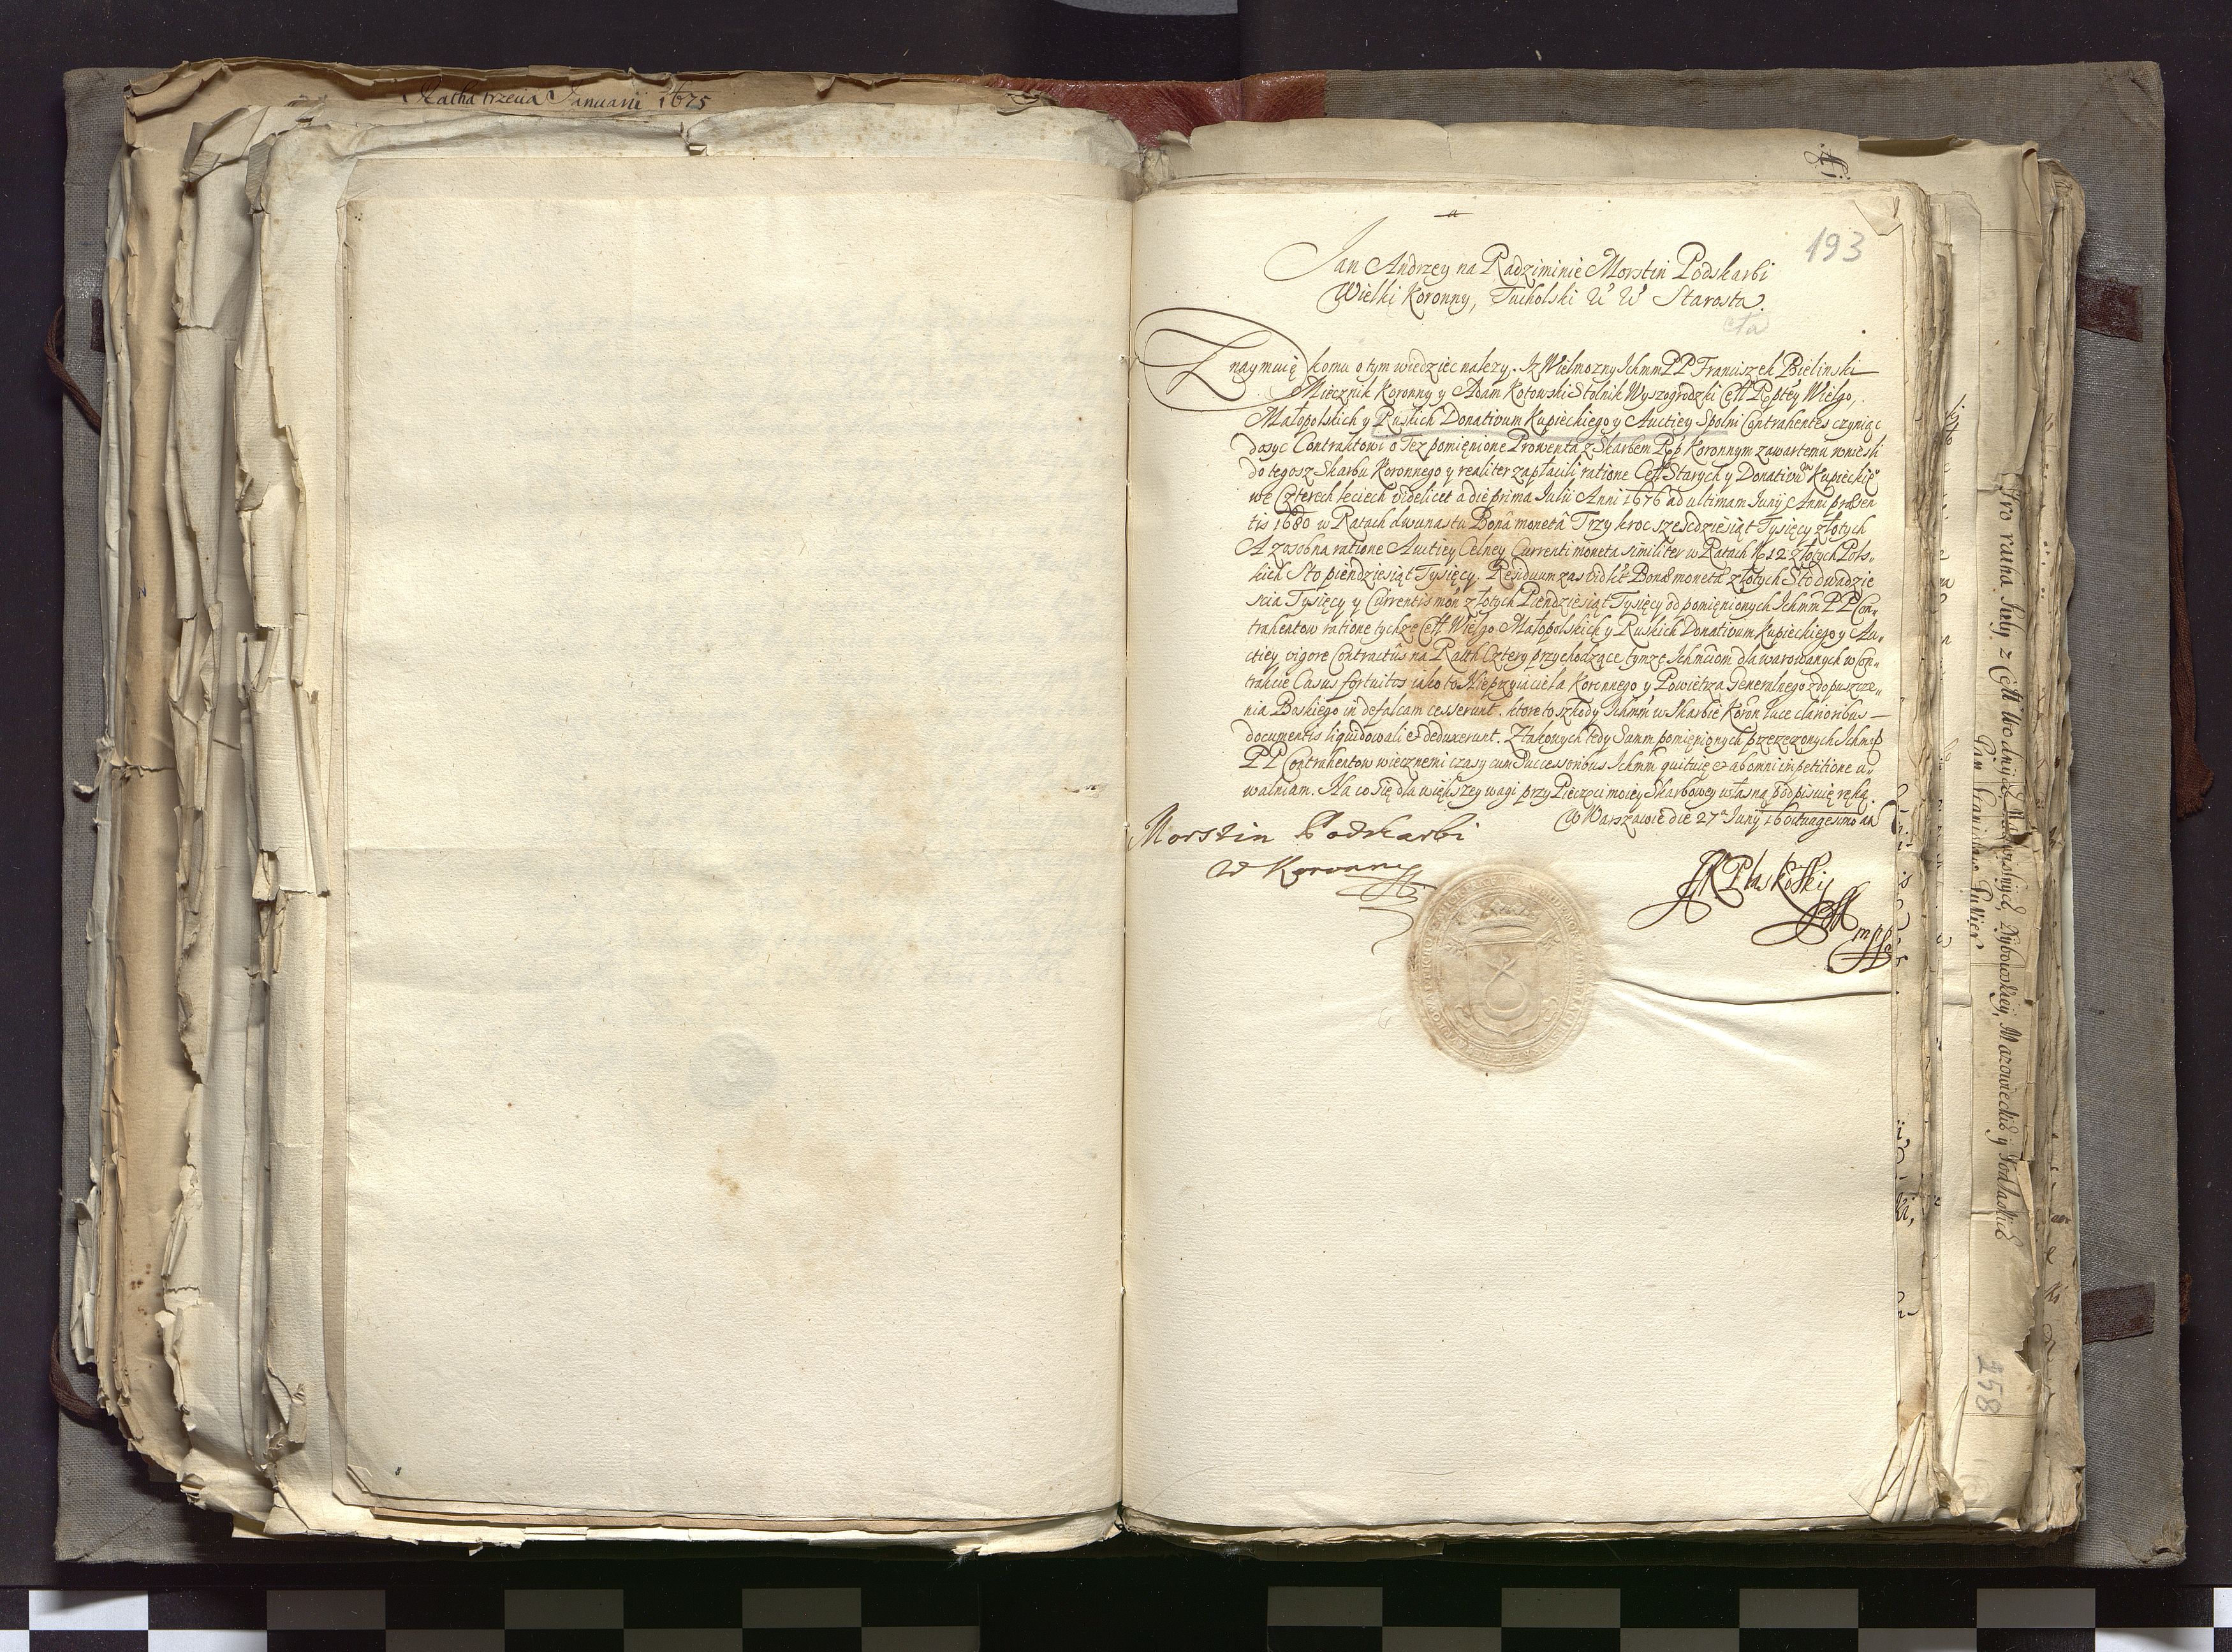 Ratha trzecia Januarii 1675
193
Jan Andrzey na Radziminie Morstin Podskarbi
Wielki Koronny, Tucholski Starosta.
cła
Znaymuię komu o tym wiedziec nalezy. Iz Wielmozny Ichmm PP Franciszek Bielinski
Miecznik Koronny y Adam Kotowski Stolnik Wyszogrodzki Cełł Rptey Wielgo,
Małopolskich y Ruskich Donativum Kupieckiego y Auctiey Spolni Contrahentes czyniąc
dosyc Contraktowi o Tez pomięnione Prowenta z Skarbem Rp Koronnym zawartemu wniesli
do tegosz Skarbu Koronnego y realiter zapłacili ratione Cełł Starych y Donativũ Kupieckieº
we Czterech leciech videlicet a die prima Julii Anni 1676 ad ultimam Juny Anni præsen
tis 1680 w Ratach dwunastu Bonâ monetâ Trzy kroc szescdziesiąt Tysięcy złotych
A zosobna ratione Auctiey Celney Currenti moneta similiter w Ratach No 12 złotych Pols-
kich Sto pięndziesiąt Tysięcy. Residuum zas vidlt Bonæ moneta złotych Sto dwadzie
scia Tysięcy y Currentis mon złotych Pięndziesiąt Tysięcy od pomięnionych Ichmm PP Con-
trahentow ratione tychze Cełł Wielgo Małopolskich y Ruskich Donativum Kupieckiego y Au-
ctiey vigore Contractûs na Rath Cztery przychodzące tymze Ichmciom dla warowanych w Con-
trakcie Casus fortuitos iako to Nieprzyiaciela Koronnego y Powietrza Generalnego z dopuszcze-
nia Boskiego in defalcam cesserunt. ktore to szkody Ichmm w Skarbie Koron luce clarioribus
documentis liquidowali et deduxerunt. Z takowych tedy Summ pomięnionych przerzeczonych Ichmp
PP Contrahentow wiecznemi czasy cum Successoribus Ichmm quituię et ab omni impetitione u-
walniam. Na co się dla większey wagi przy Pieczęci moiey Skarbowey własną podpisuię ręką.
w Warszawie die 27a Juny 16 octuagesimo an
Morstin Podskarbi
W Koronny
mpp
Pro rata July z Cełł Wodnych
Pan Stanisław
258